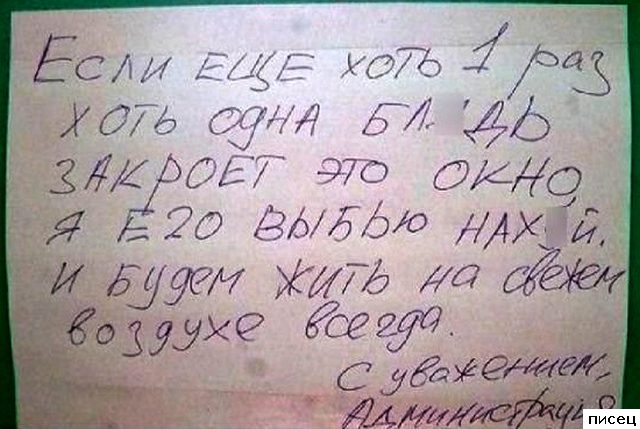 Если ЕЩЕ ХОТЬ 1 раз
ХОТЬ ОДНА БЛ ДЬ
ЗАКРОЕТ ЭТО ОКНО,
Я ЕГО ВЫБЬЮ НАХ Й.
И БУДЕМ ЖИТЬ НА СВЕЖЕМ
ВОЗДУХЕ ВСЕГДА.
С уважением,
Администрация
писец